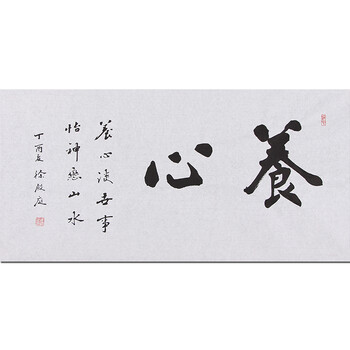 養心
養心淡世事
怡神戀山水
丁酉夏徐殷庭